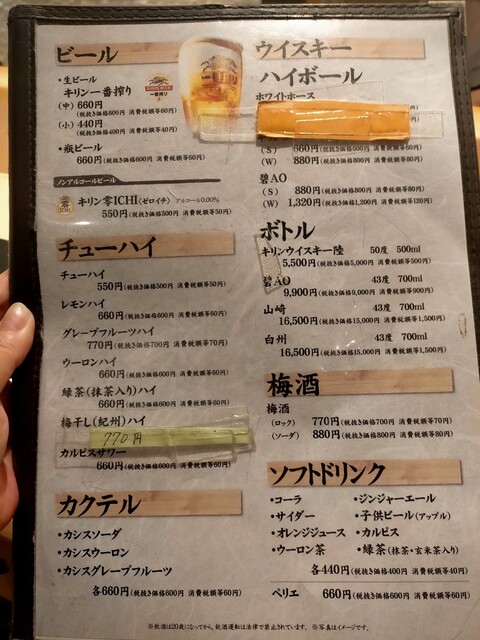 ビール
・生ビール
キリン一番搾り
(中) 660円
(税抜き価格600円 消費税額等60円)
(小) 440円
(税抜き価格400円 消費税額等40円)
・瓶ビール
660円(税抜き価格600円 消費税額等60円)
ノンアルコールビール
キリン零ICHI(ゼロイチ) アルコール0.00%
550円(税抜き価格500円 消費税額等50円)
チューハイ
チューハイ
550円(税抜き価格500円 消費税額等50円)
レモンハイ
660円(税抜き価格600円 消費税額等60円)
グレープフルーツハイ
770円(税抜き価格700円 消費税額等70円)
ウーロンハイ
660円(税抜き価格600円 消費税額等60円)
緑茶(抹茶入り)ハイ
660円(税抜き価格600円 消費税額等60円)
梅干し(紀州)ハイ
770円
カルピスサワー
660円(税抜き価格600円 消費税額等60円)
カクテル
・カシスソーダ
・カシスウーロン
・カシスグレープフルーツ
各660円(税抜き価格600円 消費税額等60円)
ウイスキー
ハイボール
ホワイトホース
(S) 660円(税抜き価格600円 消費税額等60円)
(W) 880円(税抜き価格800円 消費税額等80円)
碧AO
(S) 880円(税抜き価格800円 消費税額等80円)
(W) 1,320円(税抜き価格1,200円 消費税額等120円)
ボトル
キリンウイスキー陸 50度 500ml
5,500円(税抜き価格5,000円 消費税額等500円)
碧AO 43度 700ml
9,900円(税抜き価格9,000円 消費税額等900円)
山崎 43度 700ml
16,500円(税抜き価格15,000円 消費税額等1,500円)
白州 43度 700ml
16,500円(税抜き価格15,000円 消費税額等1,500円)
梅酒
梅酒
(ロック) 770円(税抜き価格700円 消費税額等70円)
(ソーダ) 880円(税抜き価格800円 消費税額等80円)
ソフトドリンク
・コーラ ・ジンジャーエール
・サイダー ・子供ビール(アップル)
・オレンジジュース ・カルピス
・ウーロン茶 ・緑茶(抹茶・玄米茶入り)
各440円(税抜き価格400円 消費税額等40円)
ペリエ 660円(税抜き価格600円 消費税額等60円)
※飲酒は20歳になってから。飲酒運転は法律で禁止されています。 ※写真はイメージです。